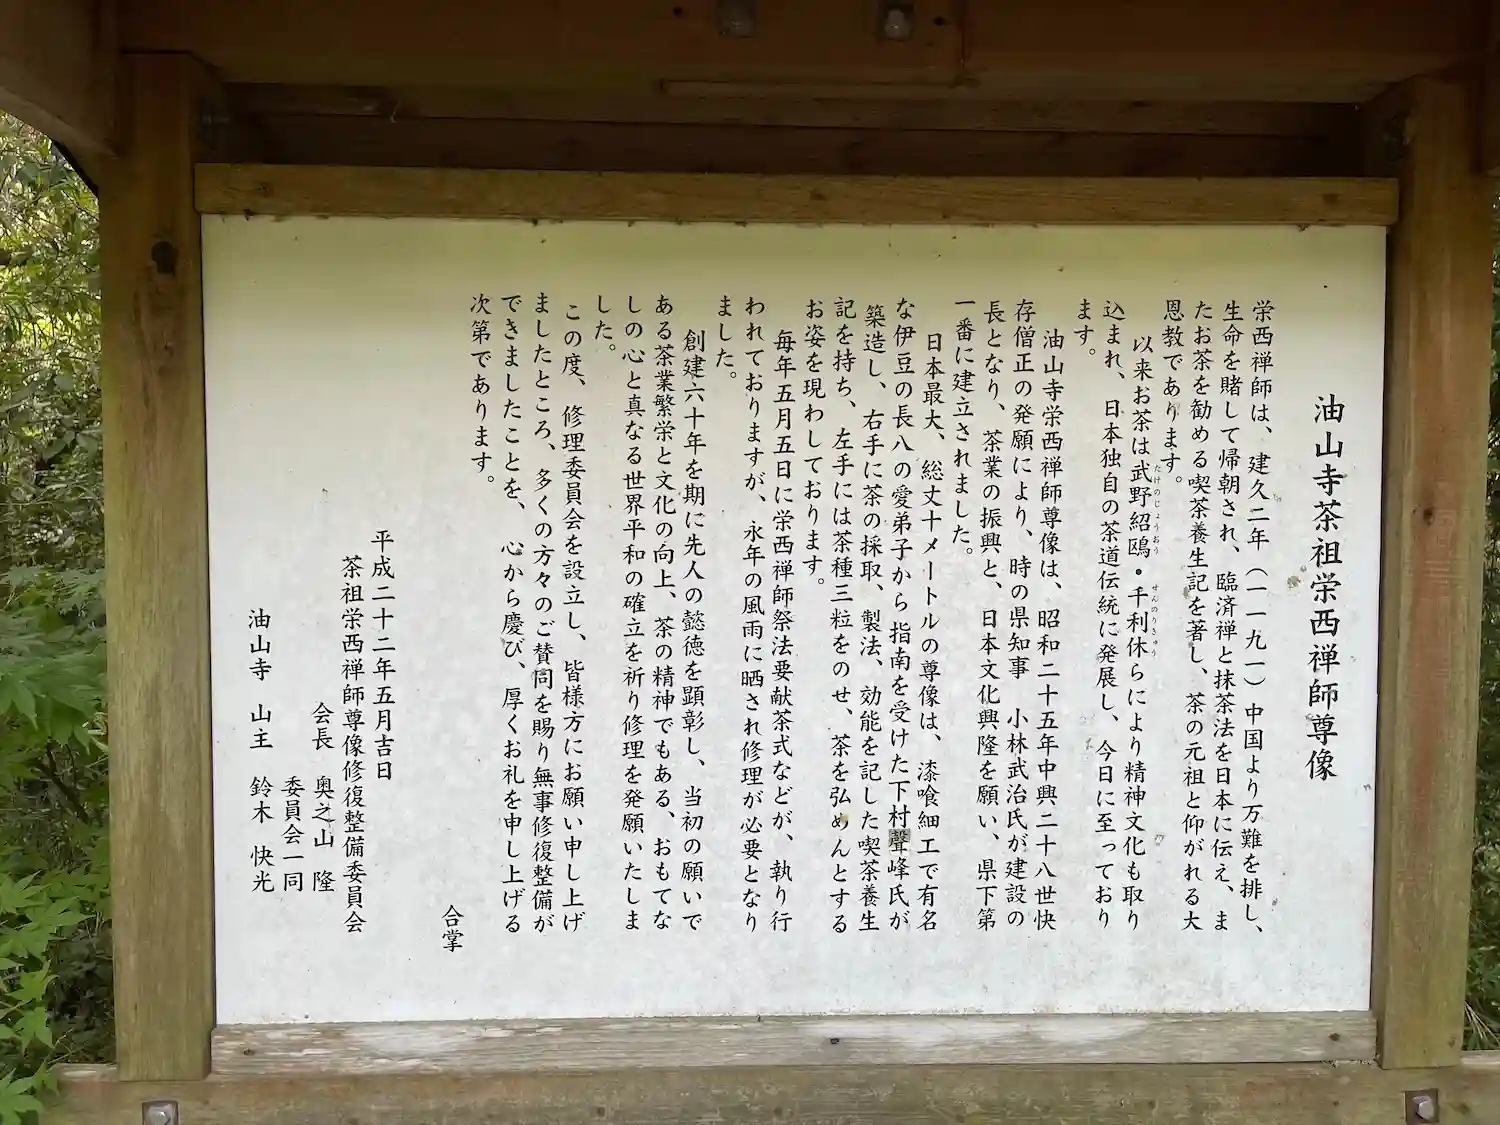 油山寺茶祖栄西禅師尊像
栄西禅師は、建久二年（一一九一）中国より万難を排し、
生命を賭して帰朝され、臨済禅と抹茶法を日本に伝え、ま
たお茶を勧める喫茶養生記を著し、茶の元祖と仰がれる大
恩教であります。
以来お茶は武野紹鴎・千利休らにより精神文化も取り
たけのじょうおう せんのりきゅう
込まれ、日本独自の茶道伝統に発展し、今日に至っており
ます。
油山寺栄西禅師尊像は、昭和二十五年中興二十八世快
存僧正の発願により、時の県知事 小林武治氏が建設の
長となり、茶業の振興と、日本文化興隆を願い、県下第
一番に建立されました。
日本最大、総丈十メートルの尊像は、漆喰細工で有名
な伊豆の長八の愛弟子から指南を受けた下村聲峰氏が
築造し、右手に茶の採取、製法、効能を記した喫茶養生
記を持ち、左手には茶種三粒をのせ、茶を弘めんとする
お姿を現わしております。
毎年五月五日に栄西禅師祭法要献茶式などが、執り行
われておりますが、永年の風雨に晒され修理が必要となり
ました。
創建六十年を期に先人の懿徳を顕彰し、当初の願いで
ある茶業繁栄と文化の向上、茶の精神でもある、おもてな
しの心と真なる世界平和の確立を祈り修理を発願いたしま
した。
この度、修理委員会を設立し、皆様方にお願い申し上げ
ましたところ、多くの方々のご賛同を賜り無事修復整備が
できましたことを、心から慶び、厚くお礼を申し上げる
次第であります。
合掌
平成二十二年五月吉日
茶祖栄西禅師尊像修復整備委員会
会長 奥之山 隆
委員会一同
油山寺 山主 鈴木 快光